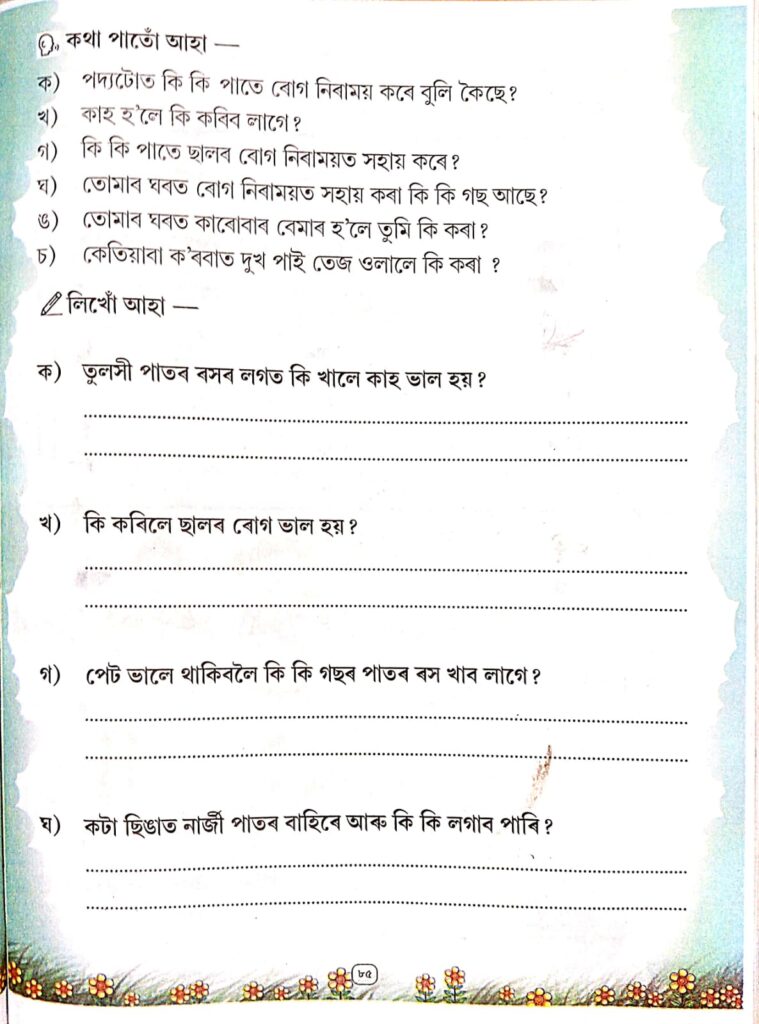 কথা পাতোঁ আহা —
ক) পদ্যটোত কি কি পাতে ৰোগ নিৰাময় কৰে বুলি কৈছে?
খ) কাহ হ'লে কি কৰিব লাগে?
গ) কি কি পাতে ছালৰ ৰোগ নিৰাময়ত সহায় কৰে?
ঘ) তোমাৰ ঘৰত ৰোগ নিৰাময়ত সহায় কৰা কি কি গছ আছে?
ঙ) তোমাৰ ঘৰত কাৰোবাৰ বেমাৰ হ'লে তুমি কি কৰা?
চ) কেতিয়াবা ক'ৰবাত দুখ পাই তেজ ওলালে কি কৰা ?
লিখোঁ আহা —
ক) তুলসী পাতৰ ৰসৰ লগত কি খালে কাহ ভাল হয়?
খ) কি কৰিলে ছালৰ ৰোগ ভাল হয়?
গ) পেট ভালে থাকিবলৈ কি কি গছৰ পাতৰ ৰস খাব লাগে?
ঘ) কটা ছিঙাত নাৰ্জী পাতৰ বাহিৰে আৰু কি কি লগাব পাৰি?
৮৫